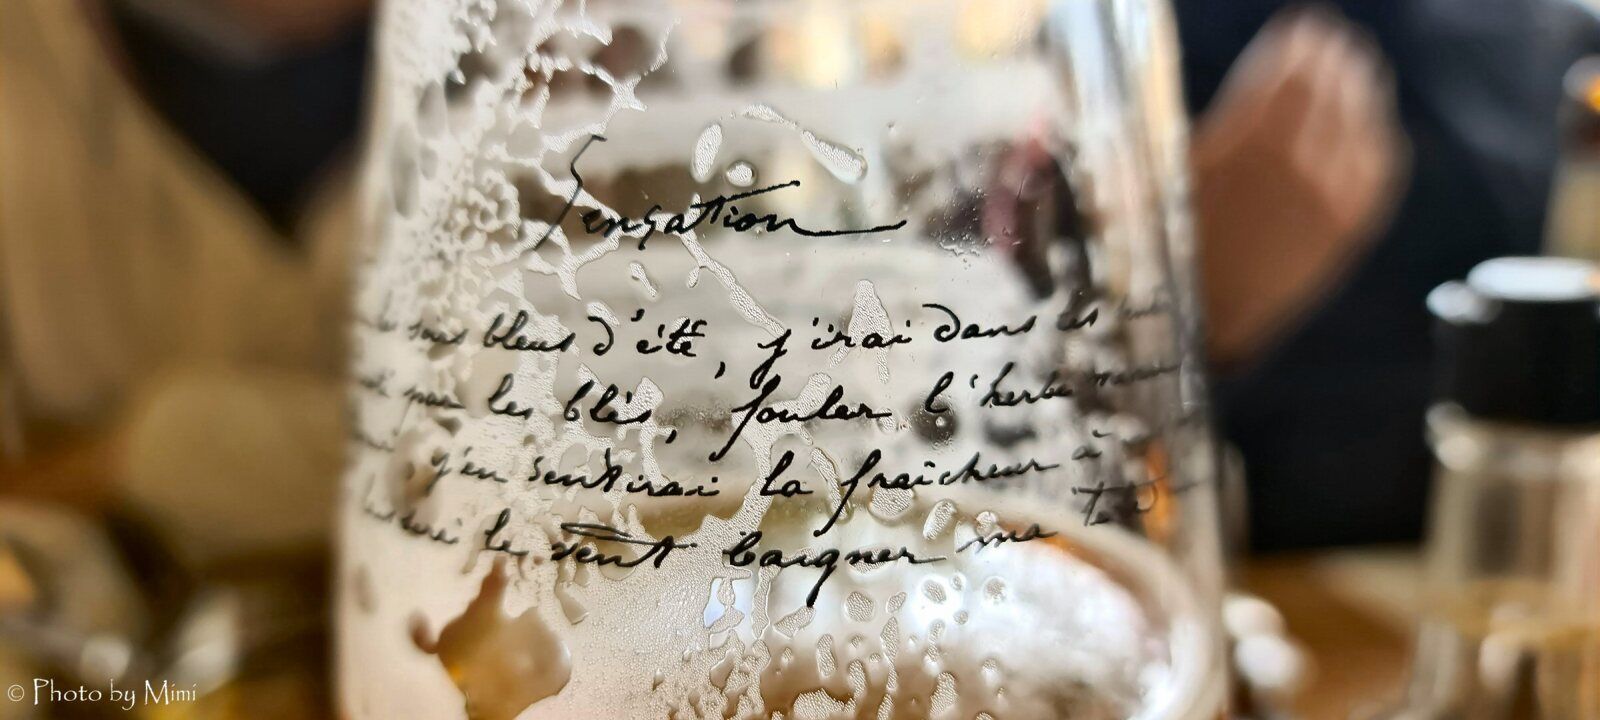 Sensation
les soirs bleus d'été, j'irai dans les
par les blés, fouler l'herbe menue
j'en sentirai la fraîcheur à
le vent baigner ma têt
© Photo by Mimi